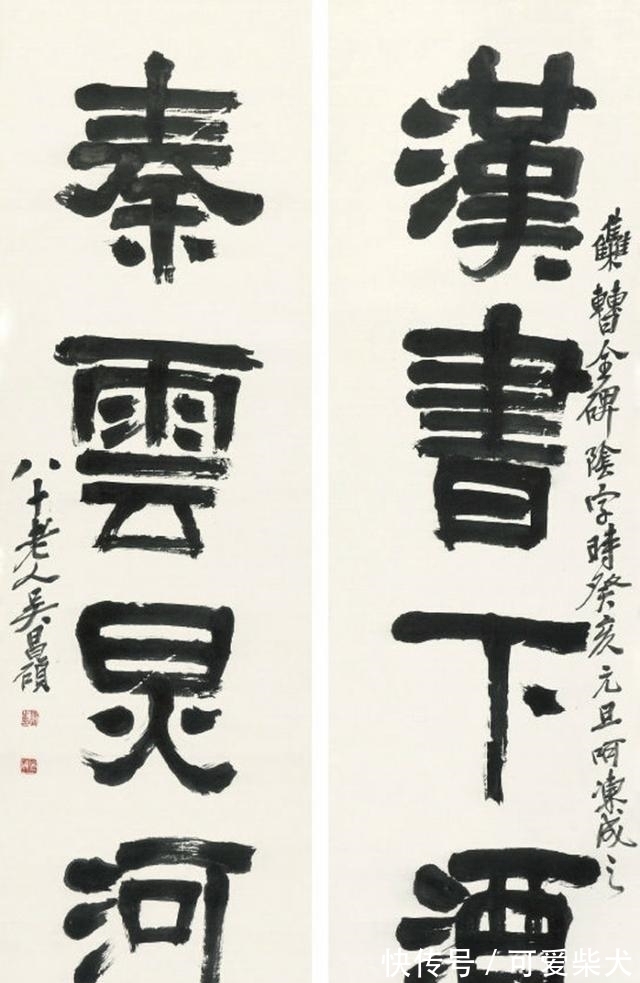 漢書下酒
雧曹全碑陰字時癸亥元旦呵凍成之
秦雲炅河
八十老人吳昌碩
快传号 / 可爱柴犬